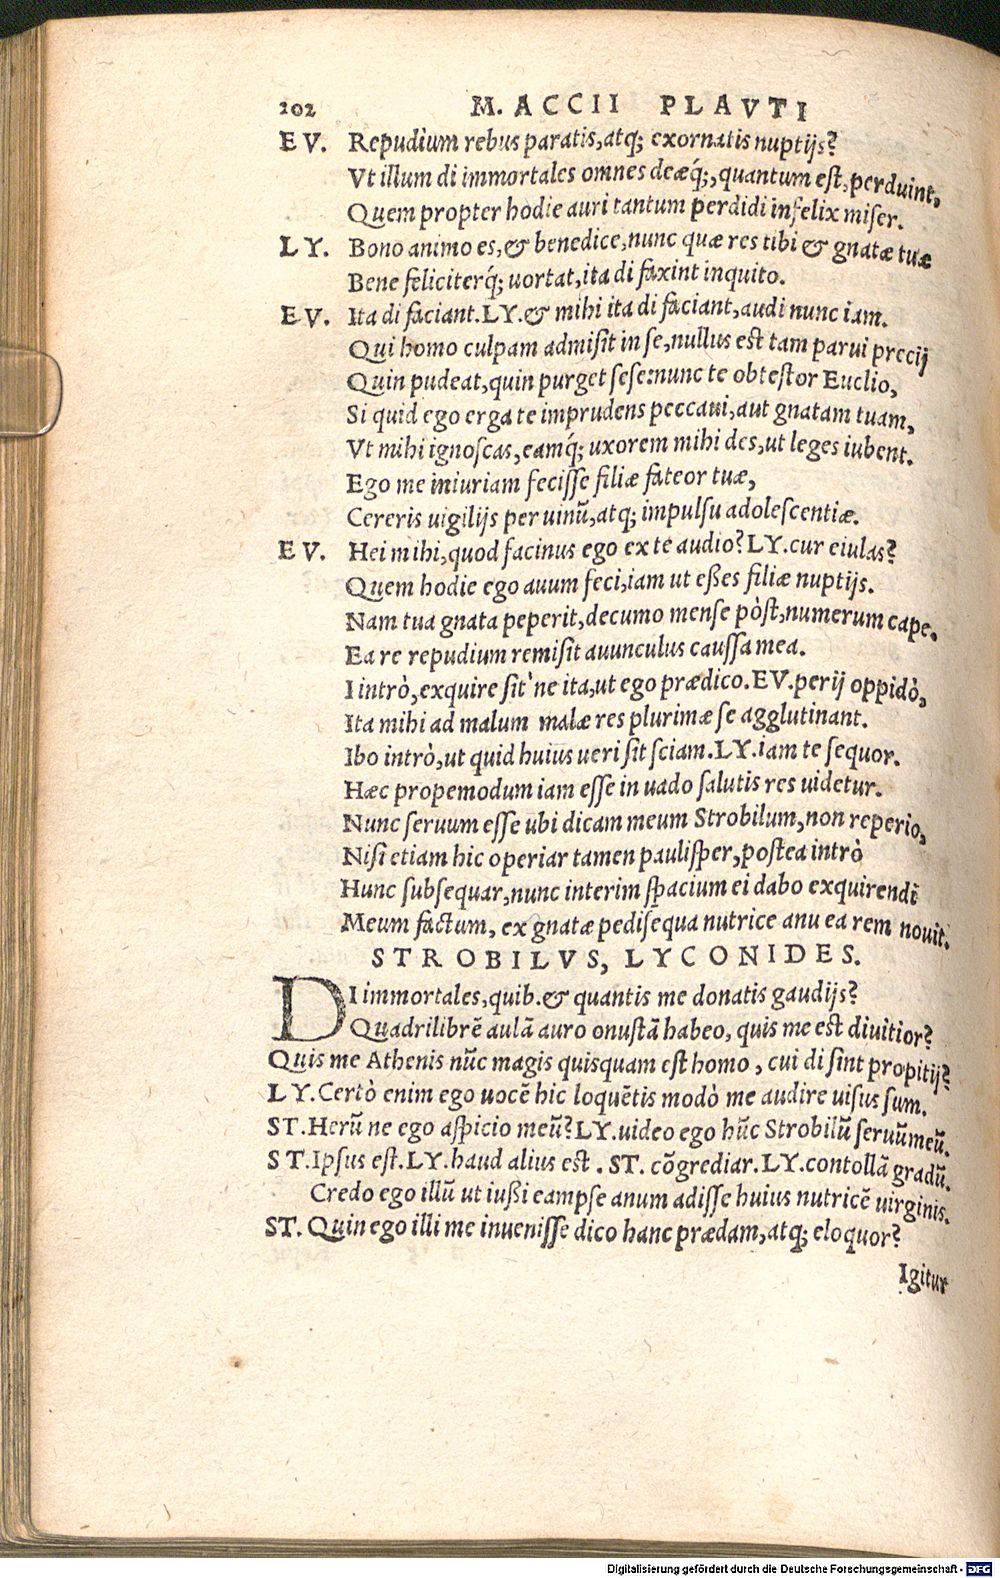 202 M. ACCII PLAVTI
EV. Repudium rebus paratis, atq; exornatis nuptijs?
Vt illum di immortales omnes deæq́;, quantum est, perduint,
Quem propter hodie auri tantum perdidi infelix miser.
LY. Bono animo es, & benedice, nunc quæ res tibi & gnatæ tuæ
Bene feliciterq́; uortat, ita di faxint inquito.
EV. Ita di faciant. LY. & mihi ita di faciant, audi nunc iam.
Qui homo culpam admisit in se, nullus est tam parui precij
Quin pudeat, quin purget sese: nunc te obtestor Euclio,
Si quid ego erga te imprudens peccaui, aut gnatam tuam,
Vt mihi ignoscas, eamq́; uxorem mihi des, ut leges iubent.
Ego me iniuriam fecisse filiæ fateor tuæ,
Cereris uigilijs per uinũ, atq; impulsu adolescentiæ.
EV. Hei mihi, quod facinus ego ex te audio? LY. cur eiulas?
Quem hodie ego auum feci, iam ut esses filiæ nuptijs.
Nam tua gnata peperit, decumo mense pòst, numerum cape.
Ea re repudium remisit auunculus caussa mea.
I intrò, exquire sit'ne ita, ut ego prædico. EV. perij oppidò,
Ita mihi ad malum malæ res plurimæ se agglutinant.
Ibo intrò, ut quid huius ueri sit sciam. LY. iam te sequor.
Hæc propemodum iam esse in uado salutis res uidetur.
Nunc seruum esse ubi dicam meum Strobilum, non reperio,
Nisi etiam hic operiar tamen paulisper, postea intrò
Hunc subsequar, nunc interim spacium ei dabo exquirendi
Meum factum, ex gnatæ pedisequa nutrice anu ea rem nouit.
STROBILVS, LYCONIDES.
DI immortales, quib. & quantis me donatis gaudijs?
Quadrilibrẽ aulã auro onustã habeo, quis me est diuitior?
Quis me Athenis nũc magis quisquam est homo, cui di sint propitij?
LY. Certò enim ego uocẽ hic loquẽtis modò me audire uisus sum.
ST. Herũ ne ego aspicio meũ? LY. uideo ego hũc Strobilũ seruũ meũ.
ST. Ipsus est. LY. haud alius est. ST. cõgrediar. LY. contollã gradũ.
Credo ego illũ ut iussi eampse anum adisse huius nutricẽ uirginis.
ST. Quin ego illi me inuenisse dico hanc prædam, atq; eloquor?
Igitur
Digitalisierung gefördert durch die Deutsche Forschungsgemeinschaft - DFG